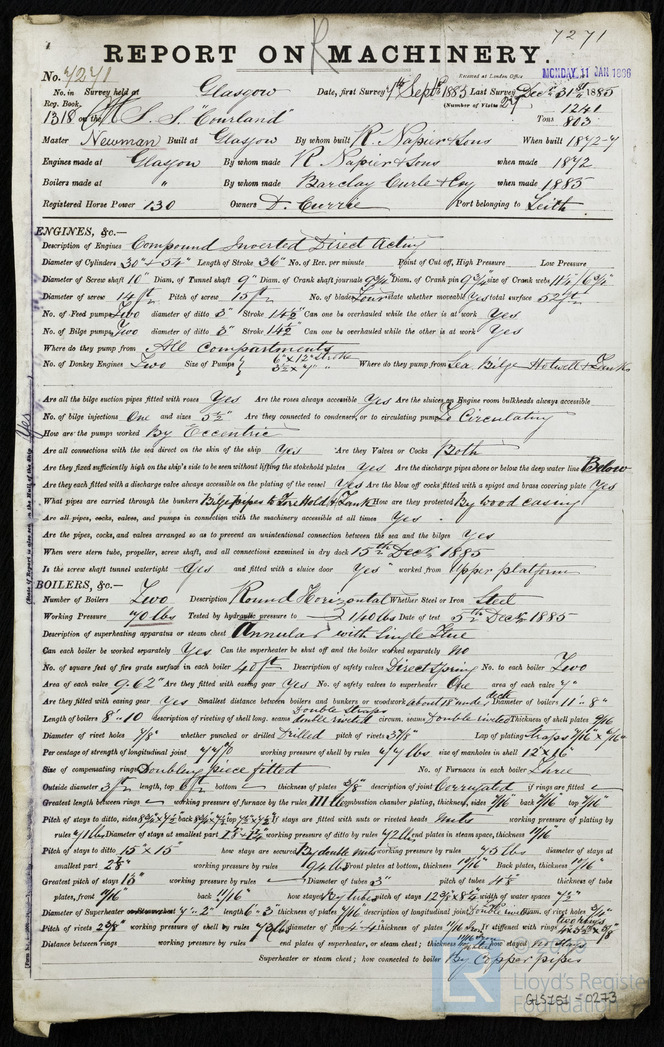 7271
REPORT ON MACHINERY.
No. 7271
Received at London Office MONDAY, 11 JAN 1886
No. in Survey held at Glasgow Date, first Survey 7th Sept 1885 Last Survey Decr 31st 1885
Reg. Book. (Number of Visits
1318 on the S. S. "Courland" Tons 1241 803
Master Newman Built at Glasgow By whom built R. Napier & Sons When built 1872-7
Engines made at Glasgow By whom made R. Napier & Sons when made 1872
Boilers made at " By whom made Barclay Curle & Coy when made 1885
Registered Horse Power 130 Owners D. Currie Port belonging to Leith
ENGINES, &c.—
Description of Engines Compound Inverted Direct Acting
Diameter of Cylinders 30" & 54" Length of Stroke 36" No. of Rev. per minute Point of Cut off, High Pressure Low Pressure
Diameter of Screw shaft 10" Diam. of Tunnel shaft 9" Diam. of Crank shaft journals 9 3/4" Diam. of Crank pin 9 3/4" size of Crank webs
Diameter of screw 14 ft Pitch of screw 15 ft No. of blades Four state whether moveable Yes total surface 52 ft
No. of Feed pumps Two diameter of ditto 3" Stroke 14 1/2" Can one be overhauled while the other is at work Yes
No. of Bilge pumps Two diameter of ditto 3" Stroke 14 1/2" Can one be overhauled while the other is at work Yes
Where do they pump from All compartments
No. of Donkey Engines Two Size of Pumps 6" x 12" Stroke 3 1/2" x 7" Where do they pump from Sea, Bilge, Hotwell & Tanks
Are all the bilge suction pipes fitted with roses Yes Are the roses always accessible Yes Are the sluices on Engine room bulkheads always accessible
No. of bilge injections One and sizes 5 1/2" Are they connected to condenser, or to circulating pump To Circulating
How are the pumps worked By Eccentric
Are all connections with the sea direct on the skin of the ship Yes Are they Valves or Cocks Both
Are they fixed sufficiently high on the ship's side to be seen without lifting the stokehold plates Yes Are the discharge pipes above or below the deep water line Below
Are they each fitted with a discharge valve always accessible on the plating of the vessel Yes Are the blow off cocks fitted with a spigot and brass covering plate Yes
What pipes are carried through the bunkers Bilge pipes to Fore Hold & Tank How are they protected By wood casing
Are all pipes, cocks, valves, and pumps in connection with the machinery accessible at all times Yes
Are the pipes, cocks, and valves arranged so as to prevent an unintentional connection between the sea and the bilges Yes
When were stern tube, propeller, screw shaft, and all connections examined in dry dock 15th Decr 1885
Is the screw shaft tunnel watertight Yes and fitted with a sluice door Yes worked from Upper platform
BOILERS, &c.—
Number of Boilers Two Description Round Horizontal Whether Steel or Iron Steel
Working Pressure 70 lbs Tested by hydraulic pressure to 140 lbs Date of test 5th Decr 1885
Description of superheating apparatus or steam chest Annular with Single Flue
Can each boiler be worked separately Yes Can the superheater be shut off and the boiler worked separately No
No. of square feet of fire grate surface in each boiler 40 ft Description of safety valves Direct Spring No. to each boiler Two
Area of each valve 9.62" Are they fitted with easing gear Yes No. of safety valves to superheater One area of each valve 7"
Are they fitted with easing gear Yes Smallest distance between boilers and bunkers or woodwork about 18" under deck Diameter of boilers 11' 8"
Length of boilers 8' 10 description of riveting of shell long. seams Double Straps double riveted circum. seams Double riveted Thickness of shell plates 9/16
Diameter of rivet holes 7/8" whether punched or drilled Drilled pitch of rivets Lap of plating Straps
Per centage of strength of longitudinal joint working pressure of shell by rules size of manholes in shell 12 x 16"
Size of compensating rings Doubling piece fitted No. of Furnaces in each boiler Three
Outside diameter 3 ft length, top 6 ft bottom thickness of plates 3/8" description of joint Corrugated if rings are fitted
Greatest length between rings working pressure of furnace by the rules 111 lb combustion chamber plating, thickness, sides 7/16 back 7/16 top 7/16"
Pitch of stays to ditto, sides back top If stays are fitted with nuts or riveted heads nuts working pressure of plating by
rules Diameter of stays at smallest part working pressure of ditto by rules 72 lbs end plates in steam space, thickness 11/16"
Pitch of stays to ditto 15" x 15" how stays are secured By double nuts working pressure by rules 75 lbs diameter of stays at
smallest part working pressure by rules 94 lbs Front plates at bottom, thickness 11/16" Back plates, thickness 11/16"
Greatest pitch of stays 15" working pressure by rules Diameter of tubes 3" pitch of tubes thickness of tube
plates, front 11/16 back 11/16" how stayed By tubes pitch of stays width of water spaces
Diameter of Superheater or Steam chest 7' 2" length 6' 3" thickness of plates 7/16 description of longitudinal joint Double riveted Diam. of rivet holes 3/4"
Pitch of rivets working pressure of shell by rules Diameter of flue 4-4 thickness of plates 7/16 If stiffened with rings Two rings
Distance between rings working pressure by rules end plates of superheater, or steam chest; thickness how stayed No Stays
Superheater or steam chest; how connected to boiler By Copper pipes
Lloyd's Register
Foundation
GLS151-0273